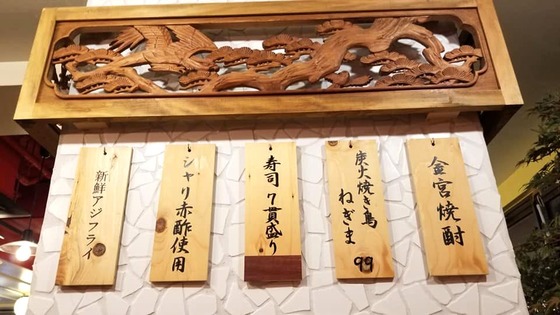 金宮焼酎
炭火焼き鳥
ねぎま
99
寿司7貫盛り
シャリ赤酢使用
新鮮アジフライ